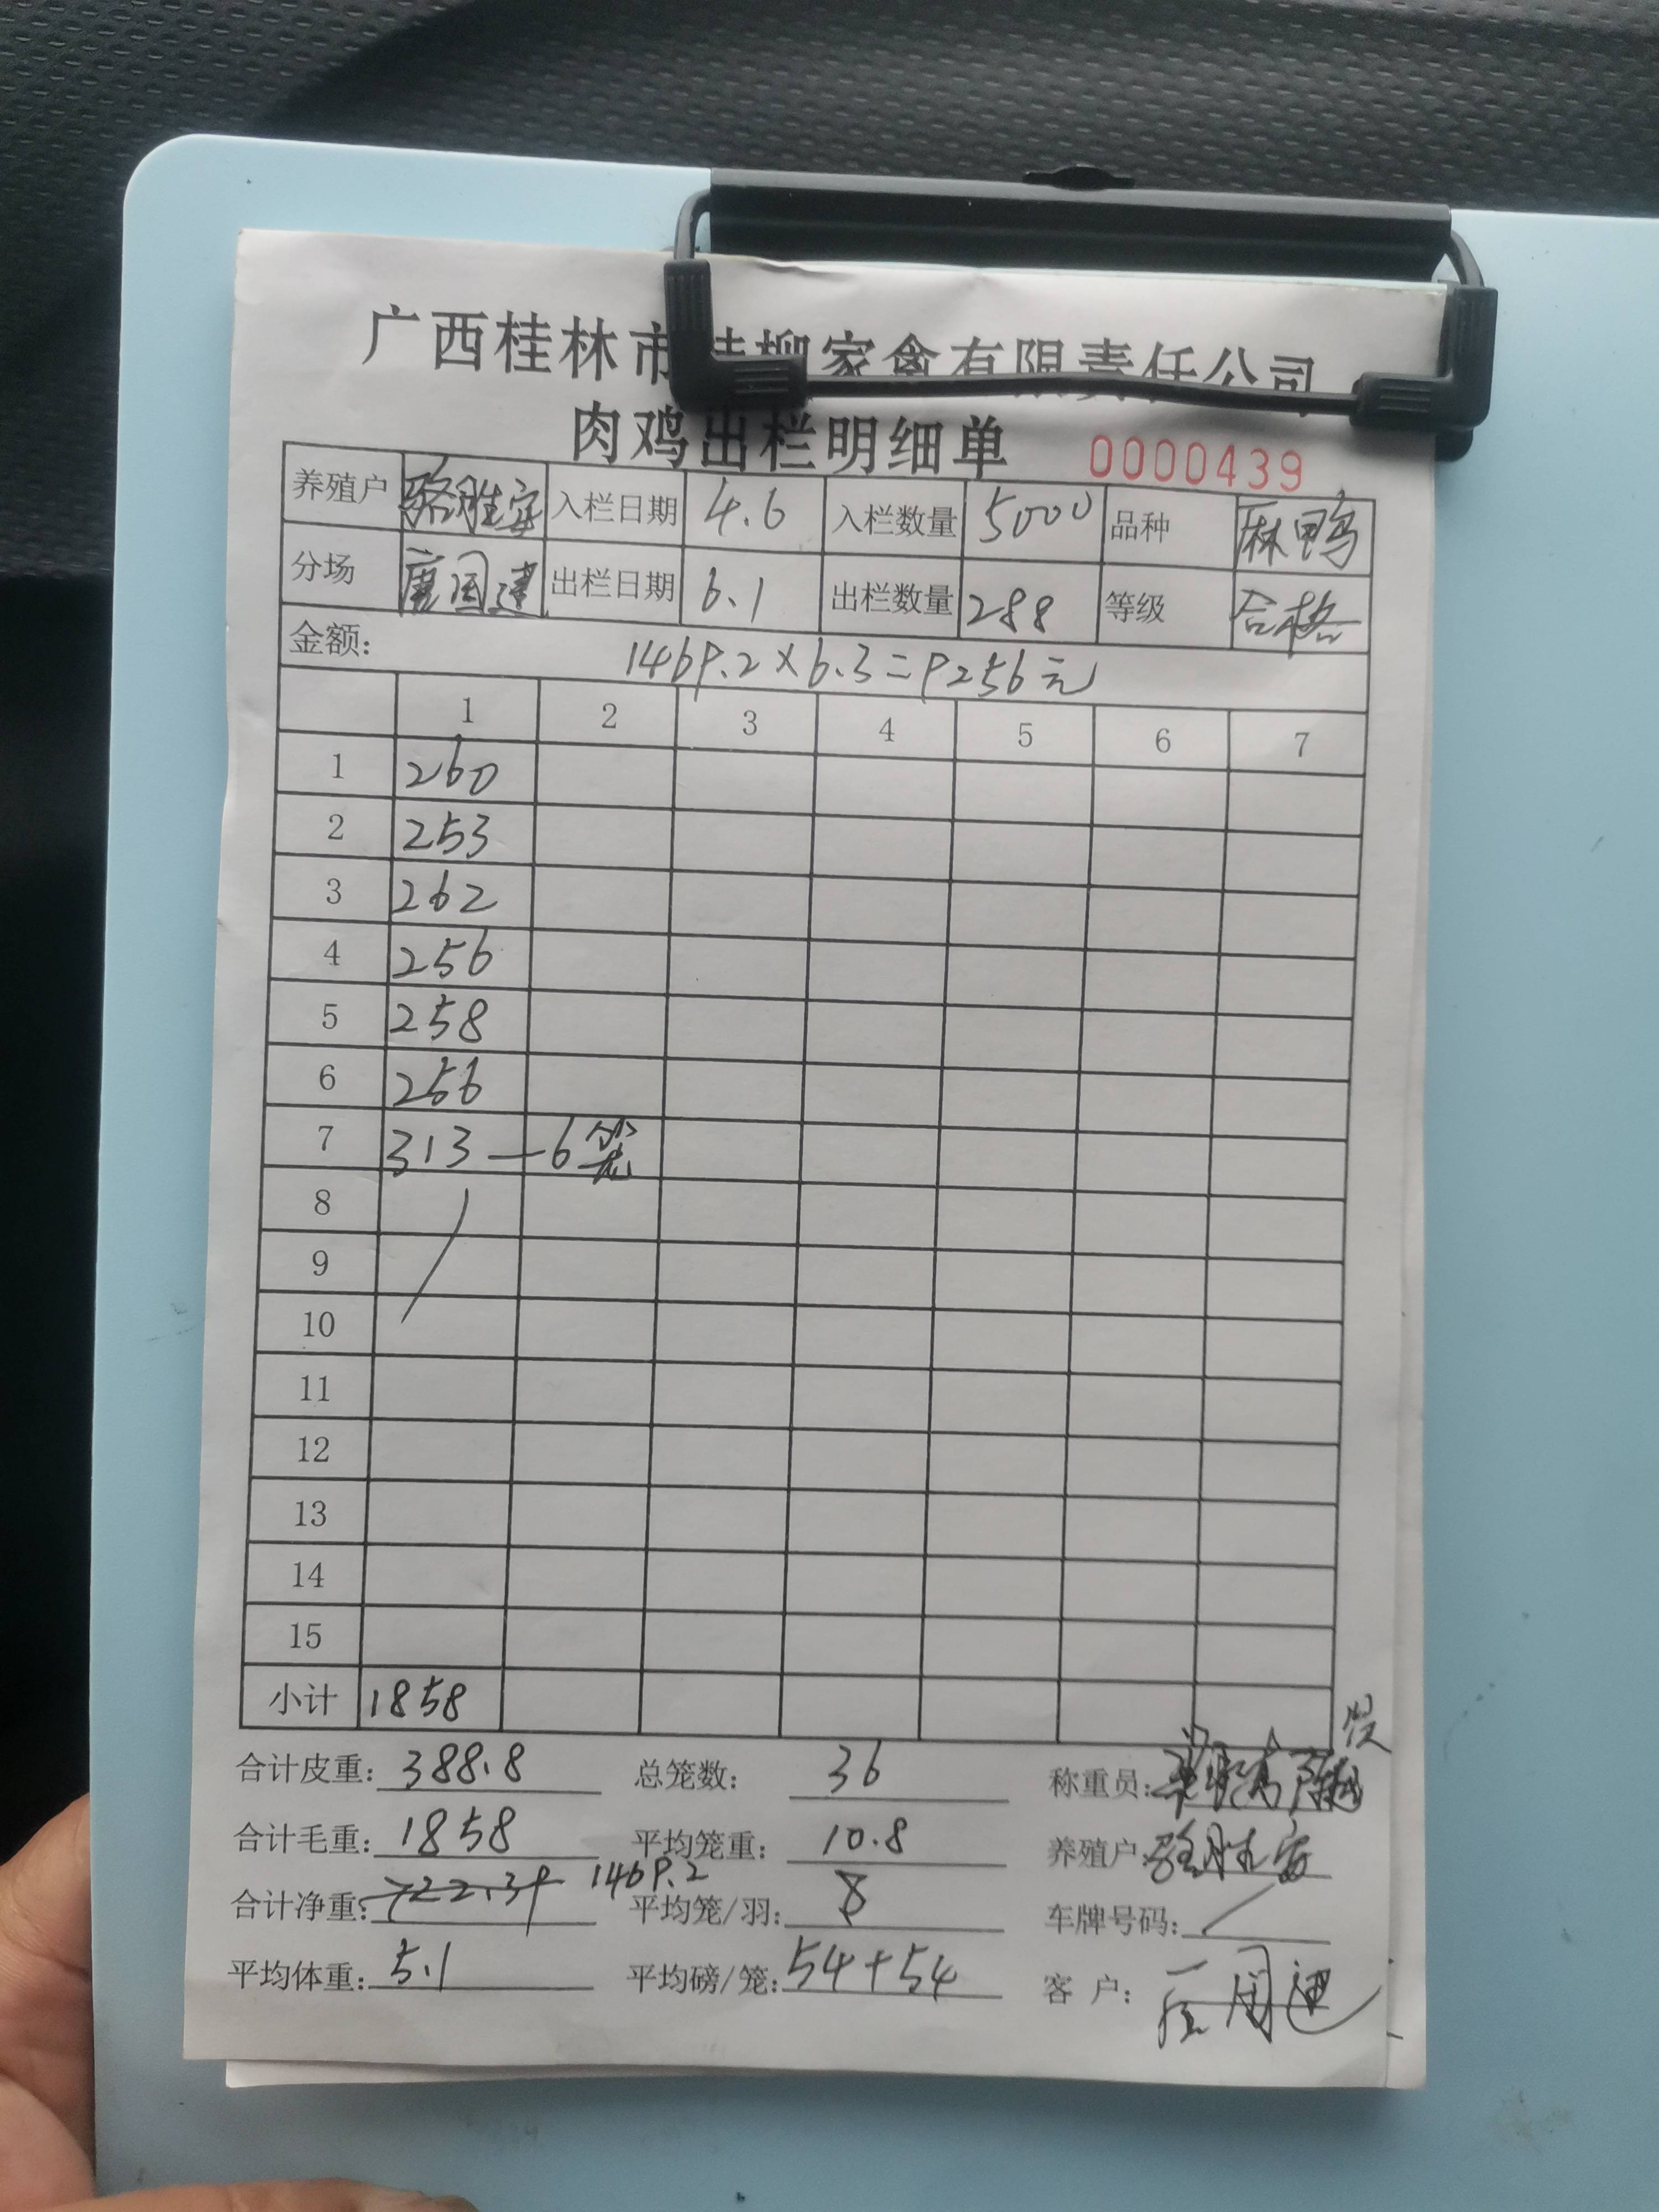 广西桂林市桂柳家禽有限责任公司
肉鸡出栏明细单 0000439
养殖户 骆胜安 入栏日期 4.6 入栏数量 5000 品种 麻鸭
分场 唐国建 出栏日期 6.1 出栏数量 288 等级 合格
金额: 1469.2×6.3=9256元
1 2 3 4 5 6 7
1 260
2 253
3 262
4 256
5 258
6 256
7 313 — 6笼
8
9
10
11
12
13
14
15
小计 1858
合计皮重: 388.8 总笼数: 36 称重员:
合计毛重: 1858 平均笼重: 10.8 养殖户: 骆胜安
合计净重: 722.39 1469.2 平均笼/羽: 8 车牌号码: /
平均体重: 5.1 平均磅/笼: 54+54 客 户: